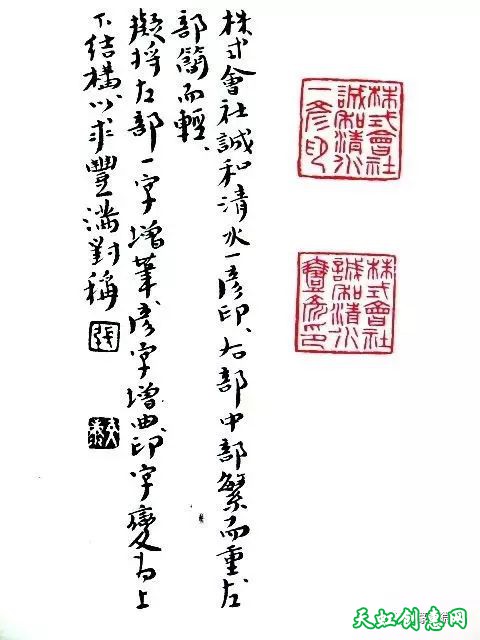 株式會社
誠和清水
一彦印
株式會社
誠和清水
壹彦印
株式會社誠和清水一彦印、右部中部繁而重左
部簡而輕、
擬將左部一字增筆彦字增曲印字變为上
下结構以求豐满對稱
張
天虹创意网